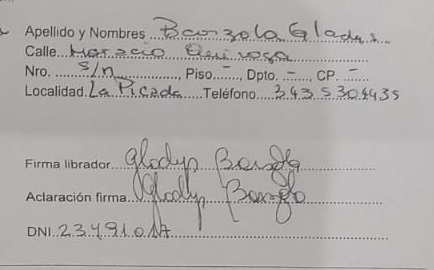 Apellido y Nombres Barzola Gladys
Calle Horacio Quiroga
Nro. s/n, Piso -, Dpto. -, CP. -
Localidad La Picada Teléfono 3435304435
Firma librador Gladys Barzola
Aclaración firma Gladys Barzola
DNI 23491017